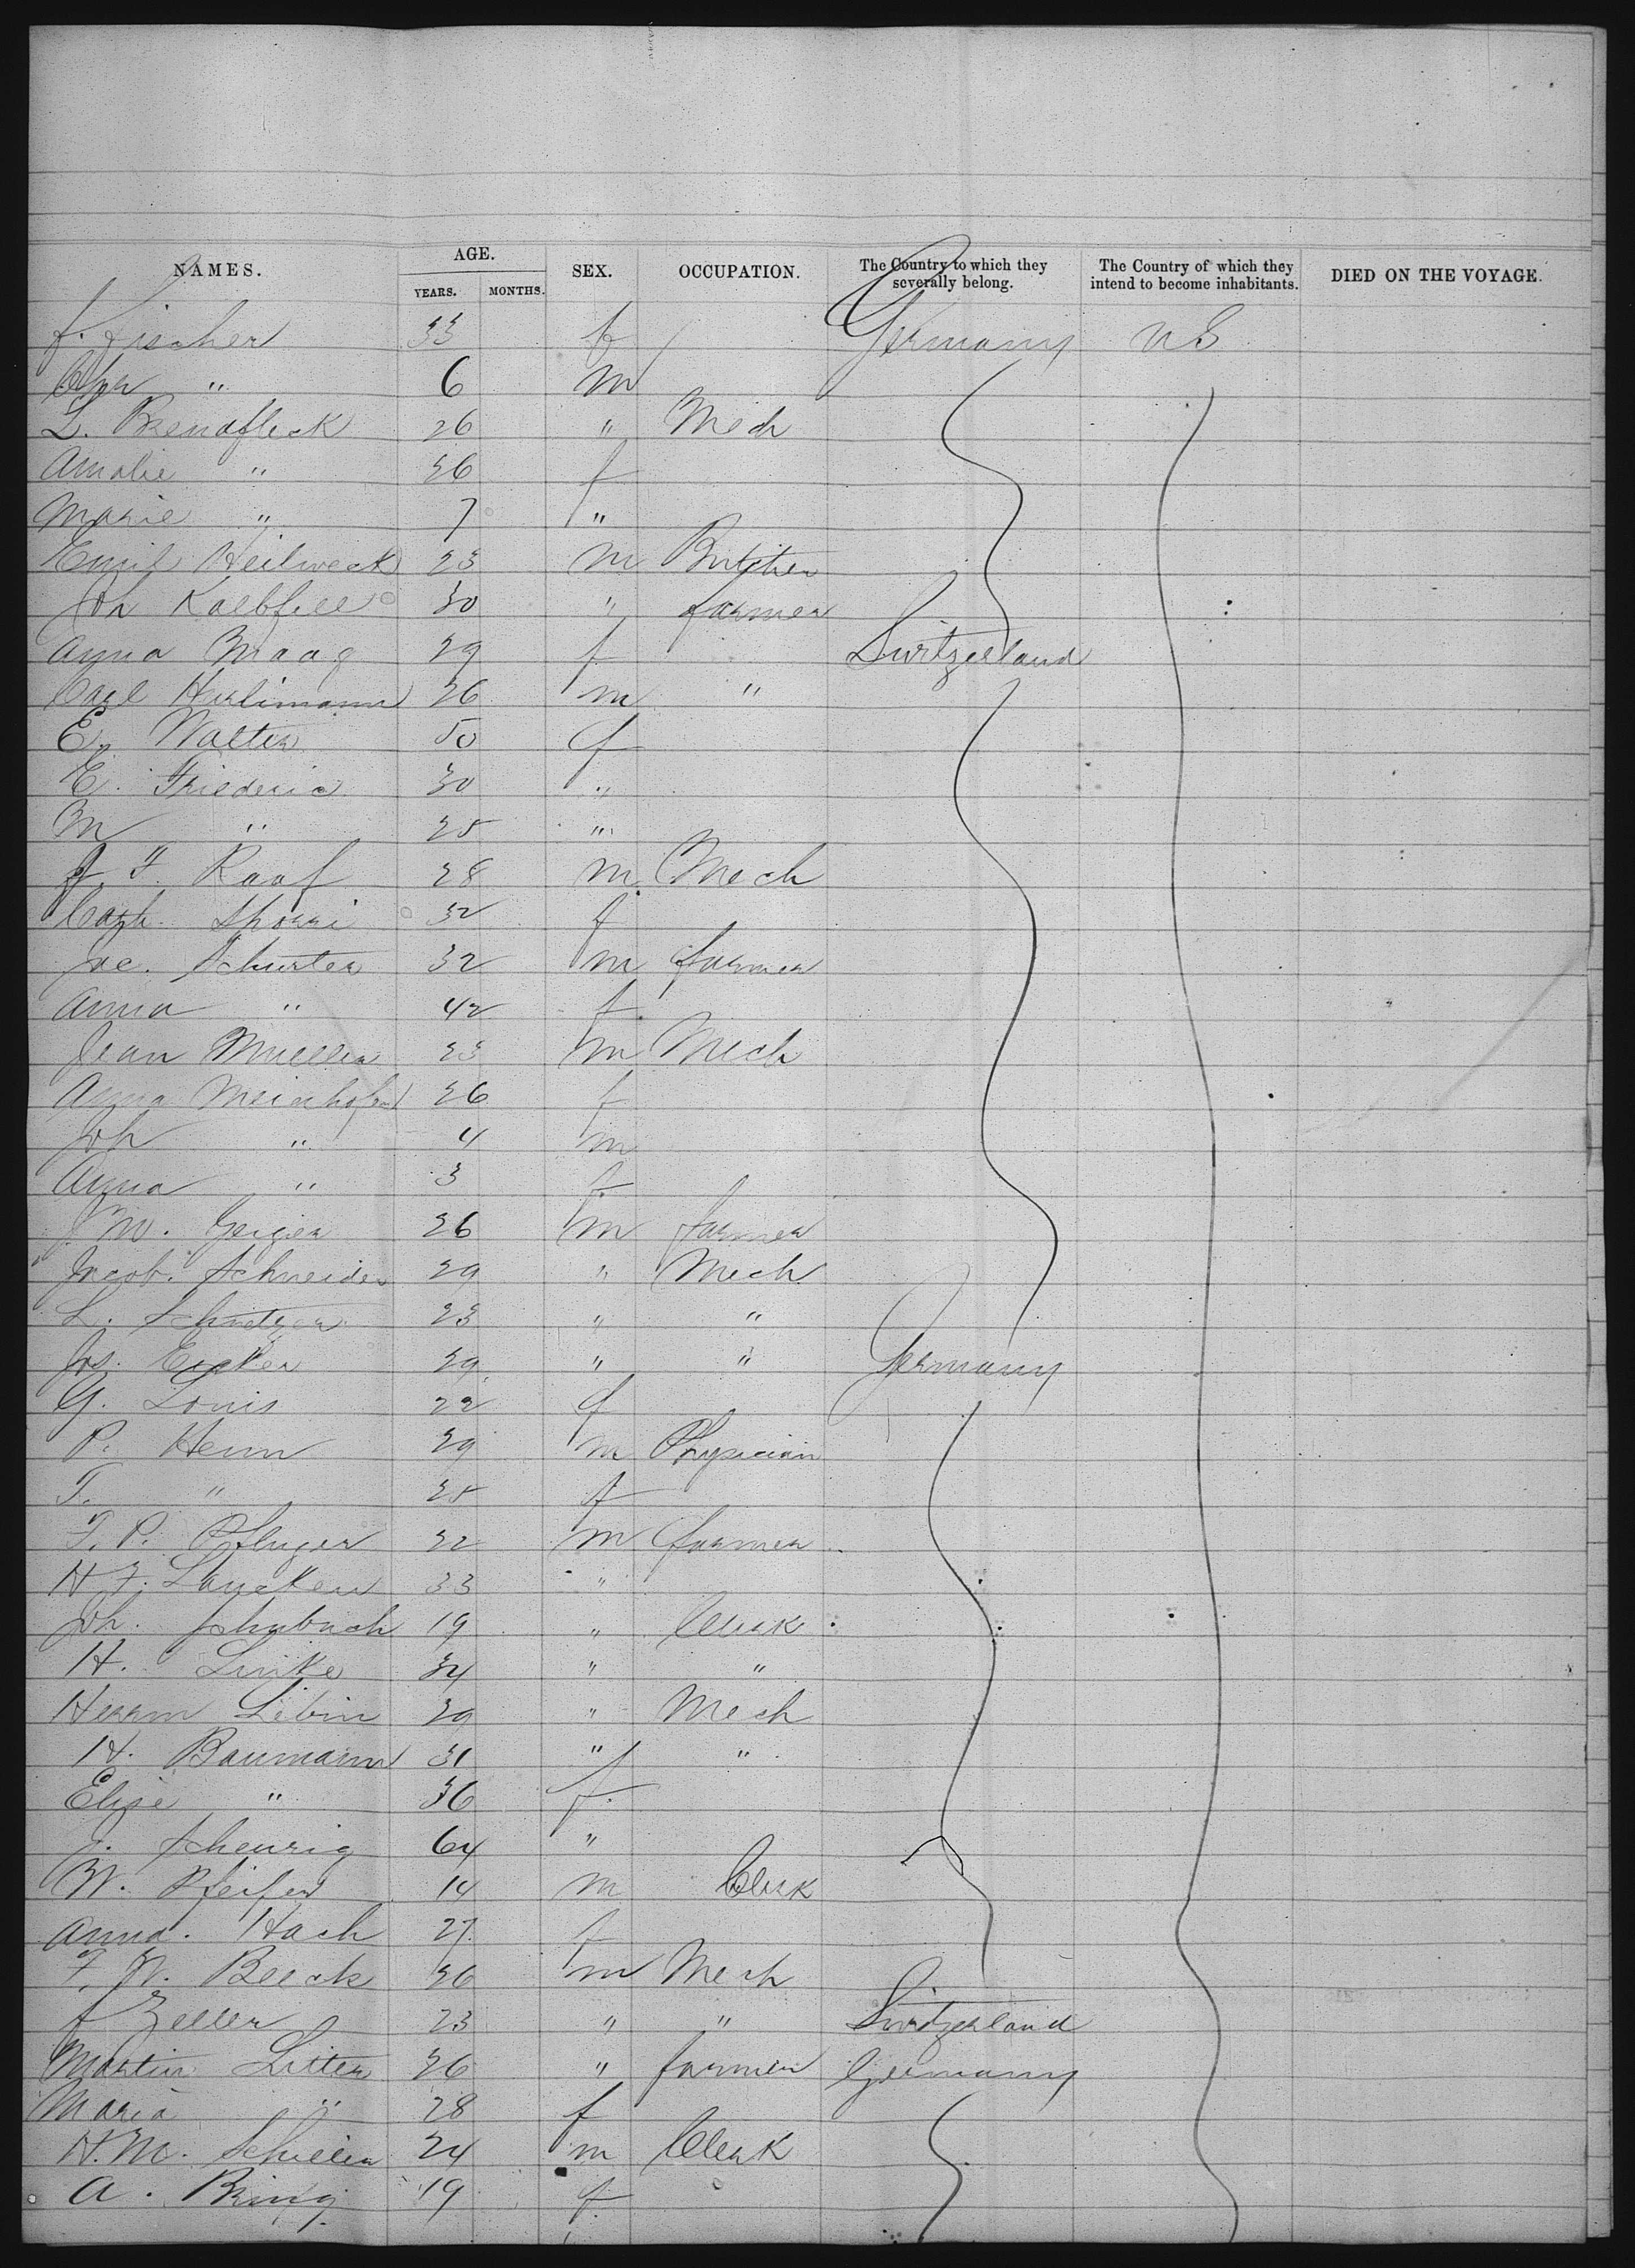 NAMES. AGE. YEARS. MONTHS. SEX. OCCUPATION. The Country to which they severally belong. The Country of which they intend to become inhabitants. DIED ON THE VOYAGE.
f. Fischer 33 f Germany U S
Chr " 6 m
L. Brendfleck 26 " Mech
Amalie " 26 f
Marie " 7 "
Emil Heilweck 23 m Butcher
Joh Kalbfell 30 " farmer
Anna Maag 29 f Switzerland
Carl Hurlimann 26 m "
E. Walter 50 f
E. Friederic 30 "
M " 25 "
J. F. Raaf 28 m Mech
Cath. 32 f
Jac. Schurter 32 m farmer
Anna " 42 f
Jean Mueller 23 m Mech
Anna Meierhofer 26 f
Joh " 4 m
Anna " 3 f
J. W. Geiger 26 m farmer
Jacob. Schneider 29 " Mech
L. 23 " "
Jos. 29 " " Germany
G. Louis 22 f
P. Henn 29 m Physician
T. " 25 f
F. P. Pfluger 32 m farmer
H F. Laucken 33 "
Joh. 19 " Clerk
H. Linke 34 " "
Herrm Libin 29 " Mech
H. Baumann 31 " "
Elise " 36 f
J. Scheurig 64 "
W. Pfeifer 14 m Clerk
Anna. Hach 27 f
F. W. Beeck 26 m Mech
f Zeller 23 " " Switzerland
Martin Litter 26 " farmer Germany
Maria " 28 f
H. M. Schiller 24 m Clerk
A. Bring 19 f